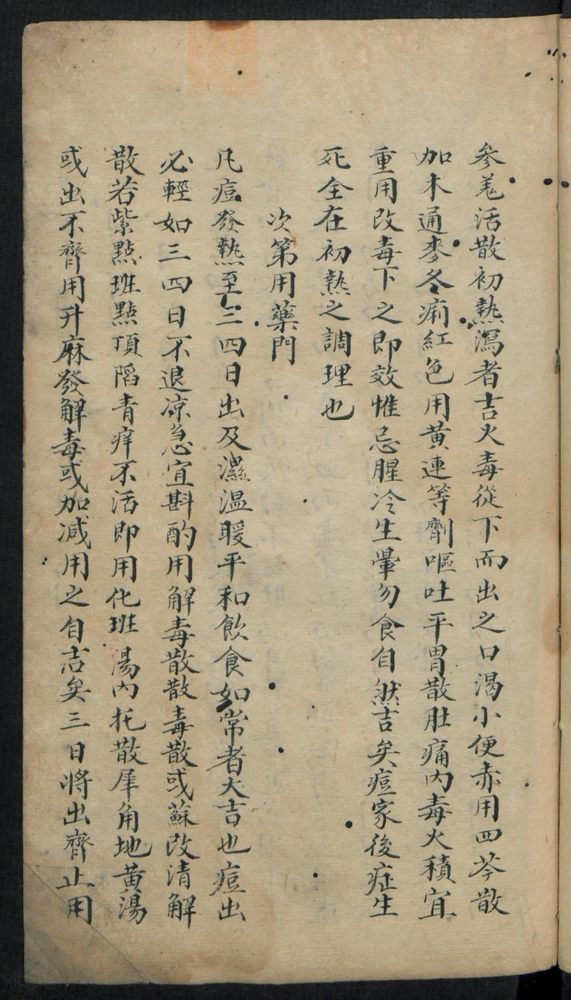 參羌活散初熱瀉者吉火毒從下而出之口渴小便赤用四苓散
加木通麥冬痢紅色用黃連等劑嘔吐平胃散肚痛內毒火積宜
重用改毒下之即效惟忌腥冷生葷勿食自然吉矣痘家後症生
死全在初熱之調理也
次第用藥門
凡痘發熱至三四日出及濕溫暖平和飲食如常者大吉也痘出
必輕如三四日不退凉急宜斟酌用解毒散散毒散或蘇改清解
散若紫點班點頂陷青痒不活即用化班湯內托散犀角地黃湯
或出不齊用升麻發解毒或加减用之自吉矣三日將出齊止用